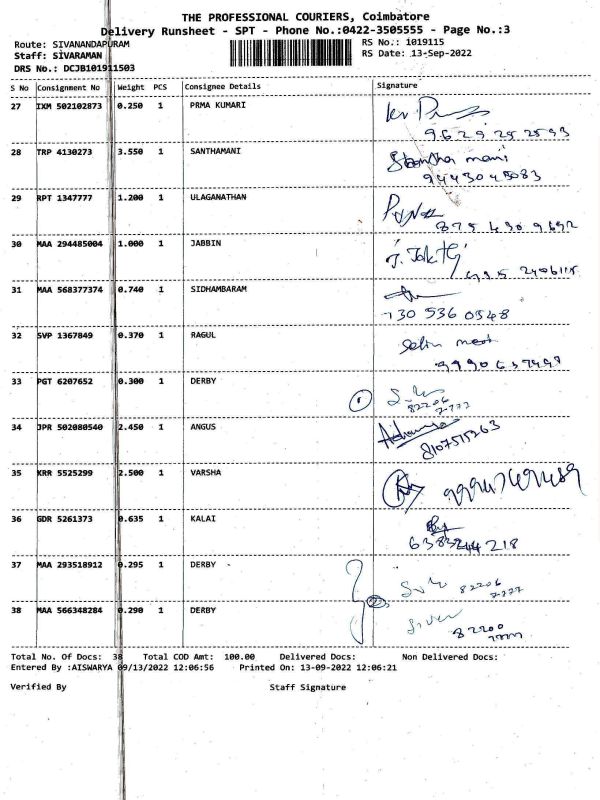 THE PROFESSIONAL COURIERS, Coimbatore
Delivery Runsheet - SPT - Phone No.:0422-3505555 - Page No.:3
Route: SIVANANDAPURAM RS No.: 1019115
Staff: SIVARAMAN RS Date: 13-Sep-2022
DRS No.: DCJB101911503
S No Consignment No Weight PCS Consignee Details Signature
27 IXM 502102873 0.250 1 PRMA KUMARI
9629252593
28 TRP 4130273 3.550 1 SANTHAMANI
9443045083
29 RPT 1347777 1.200 1 ULAGANATHAN
30 MAA 294485004 1.000 1 JABBIN
31 MAA 568377374 0.740 1 SIDHAMBARAM
730 536 0548
32 SVP 1367849 0.370 1 RAGUL
33 PGT 6207652 0.300 1 DERBY
82206
34 JPR 502080540 2.450 1 ANGUS
8107515263
35 KRR 5525299 2.500 1 VARSHA
36 GDR 5261373 0.635 1 KALAI
37 MAA 293518912 0.295 1 DERBY
82206
38 MAA 566348284 0.290 1 DERBY
82200
Total No. Of Docs: 38 Total COD Amt: 100.00 Delivered Docs: Non Delivered Docs:
Entered By :AISWARYA 09/13/2022 12:06:56 Printed On: 13-09-2022 12:06:21
Verified By Staff Signature